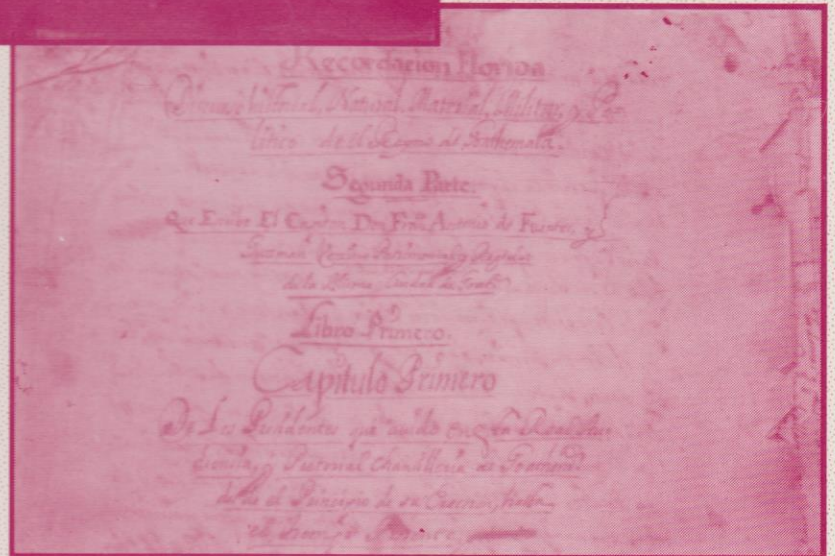 Recordacion Florida
Discurso historial, Natural, Material, Militar, y Po-
litico de el Reyno de Guathemala.
Segunda Parte.
Que Escrive El Capitan Don Franco Antonio de Fuentes, y
Guzman Vecino Patrimonial y Regidor
de la Ciudad de
Libro Primero.
Capitulo Primero
De Los Presidentes que avido en la Real Au-
diencia, y Pretorial Chancilleria de
desde el Principio de su hasta
el tiempo